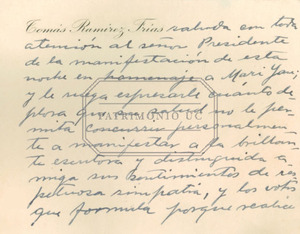 Tomás Ramírez Frías saluda con toda
atención al señor Presidente
de la manifestación de esta
noche en homenaje a Mari Yan,
y le ruega expresarle cuanto de
plora que su salud no le per
mita concurrir personalmen
te a manifestar a la brillan
te escritora y distinguida a
miga sus sentimientos de res
petuosa simpatía, y los votos
que formula porque realice
PATRIMONIO UC